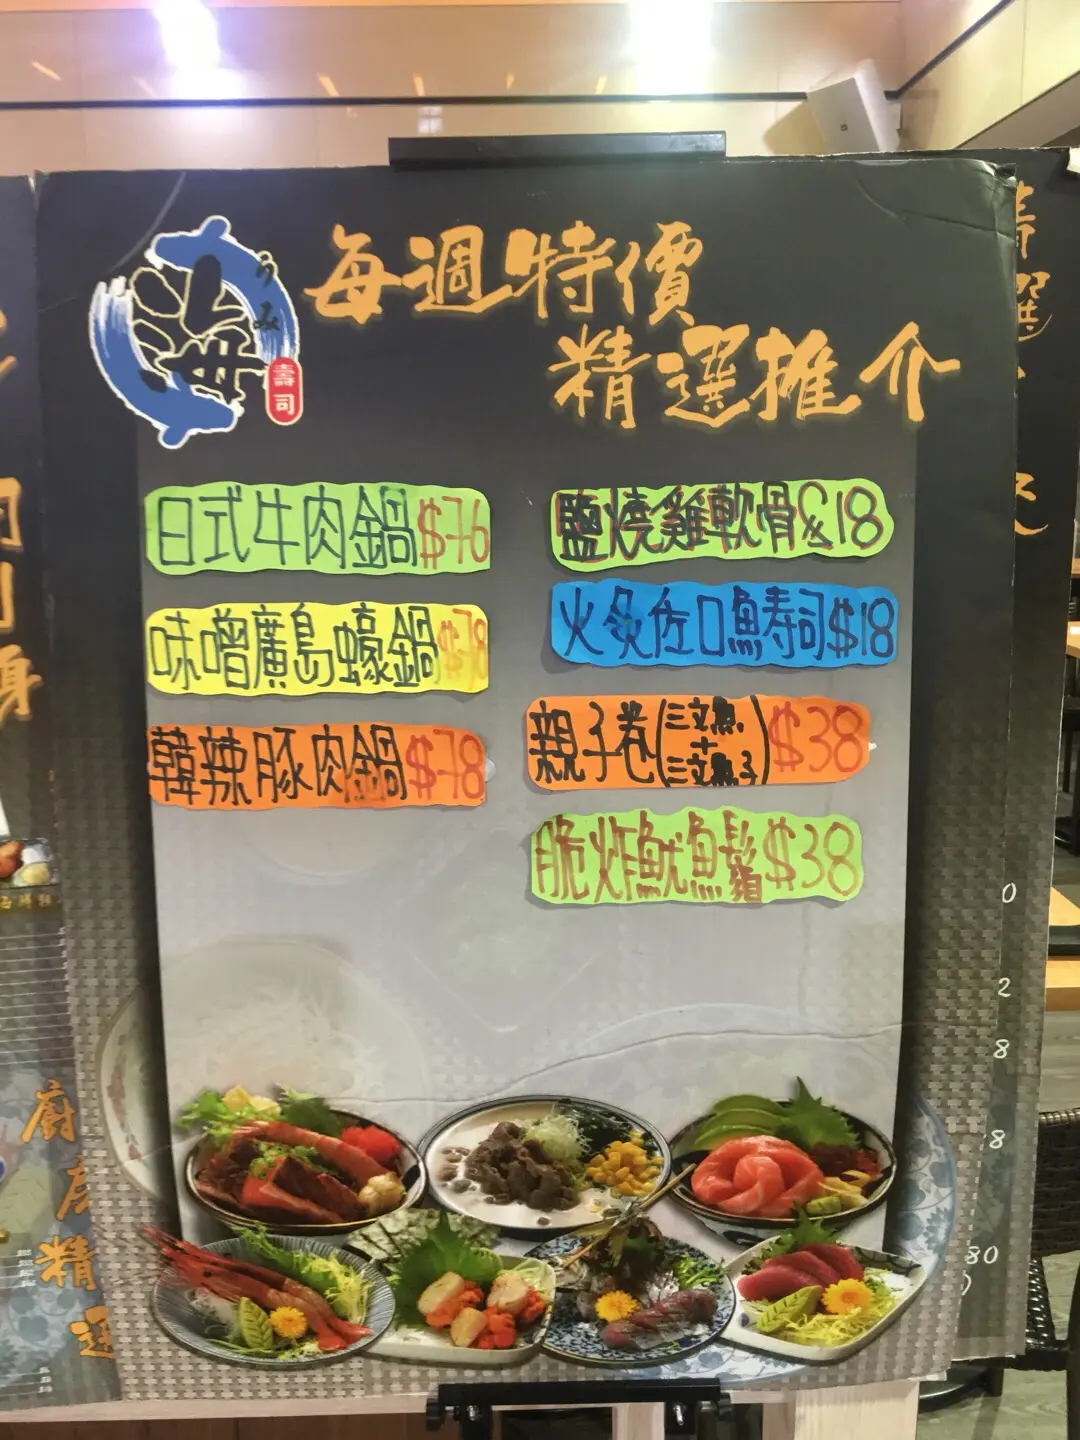 每週特價
精選推介
うみ
海
壽司
日式牛肉鍋$76
味噌廣島蠔鍋$78
韓辣豚肉鍋$78
鹽燒雞軟骨$18
火炙佐口魚寿司$18
親子卷(三文魚+三文魚子)$38
脆炸魷魚鬚$38
廚房精選
0
2
8
8
80